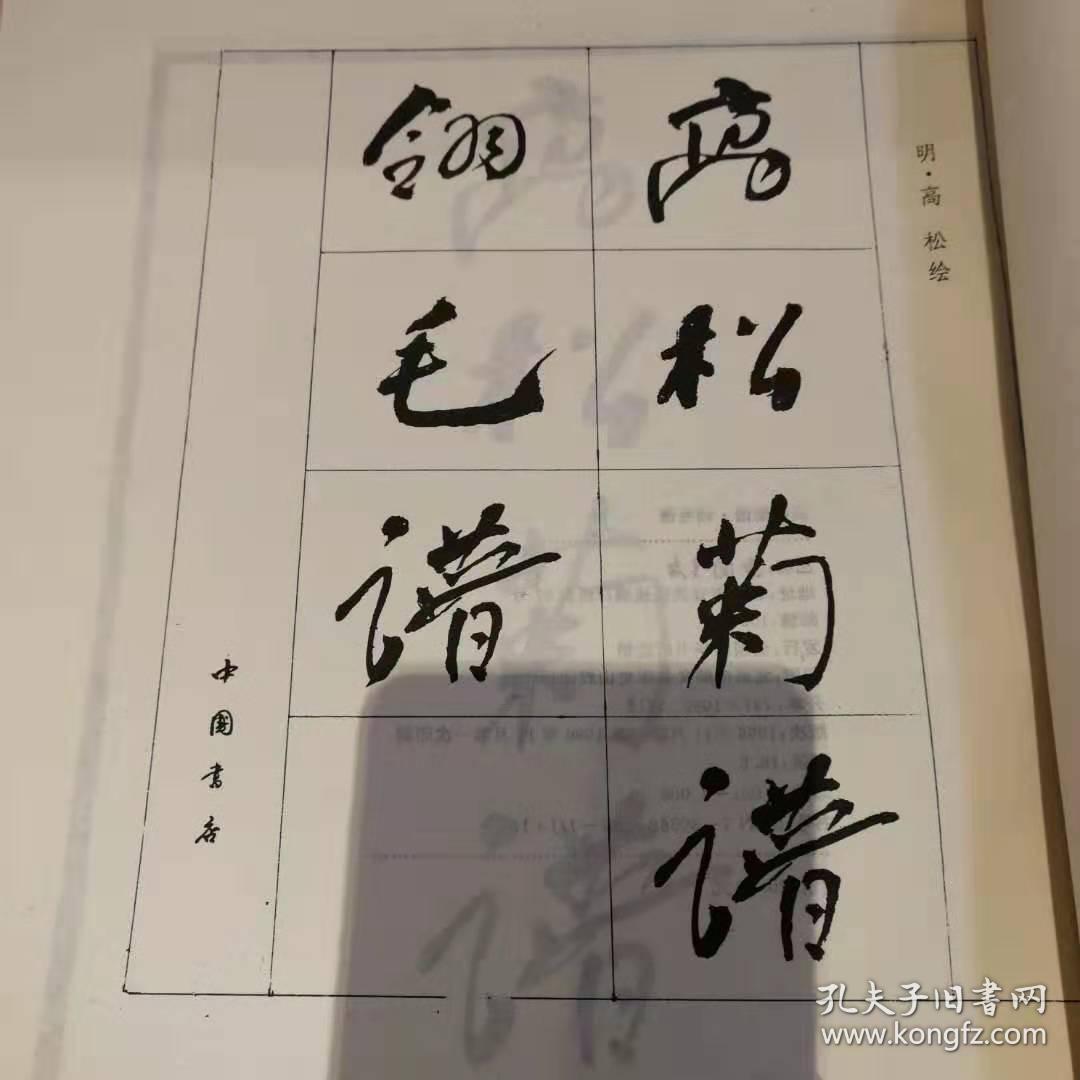 明·高松绘
高松菊谱
翎毛谱
中國書店
孔夫子旧书网
www.kongfz.com